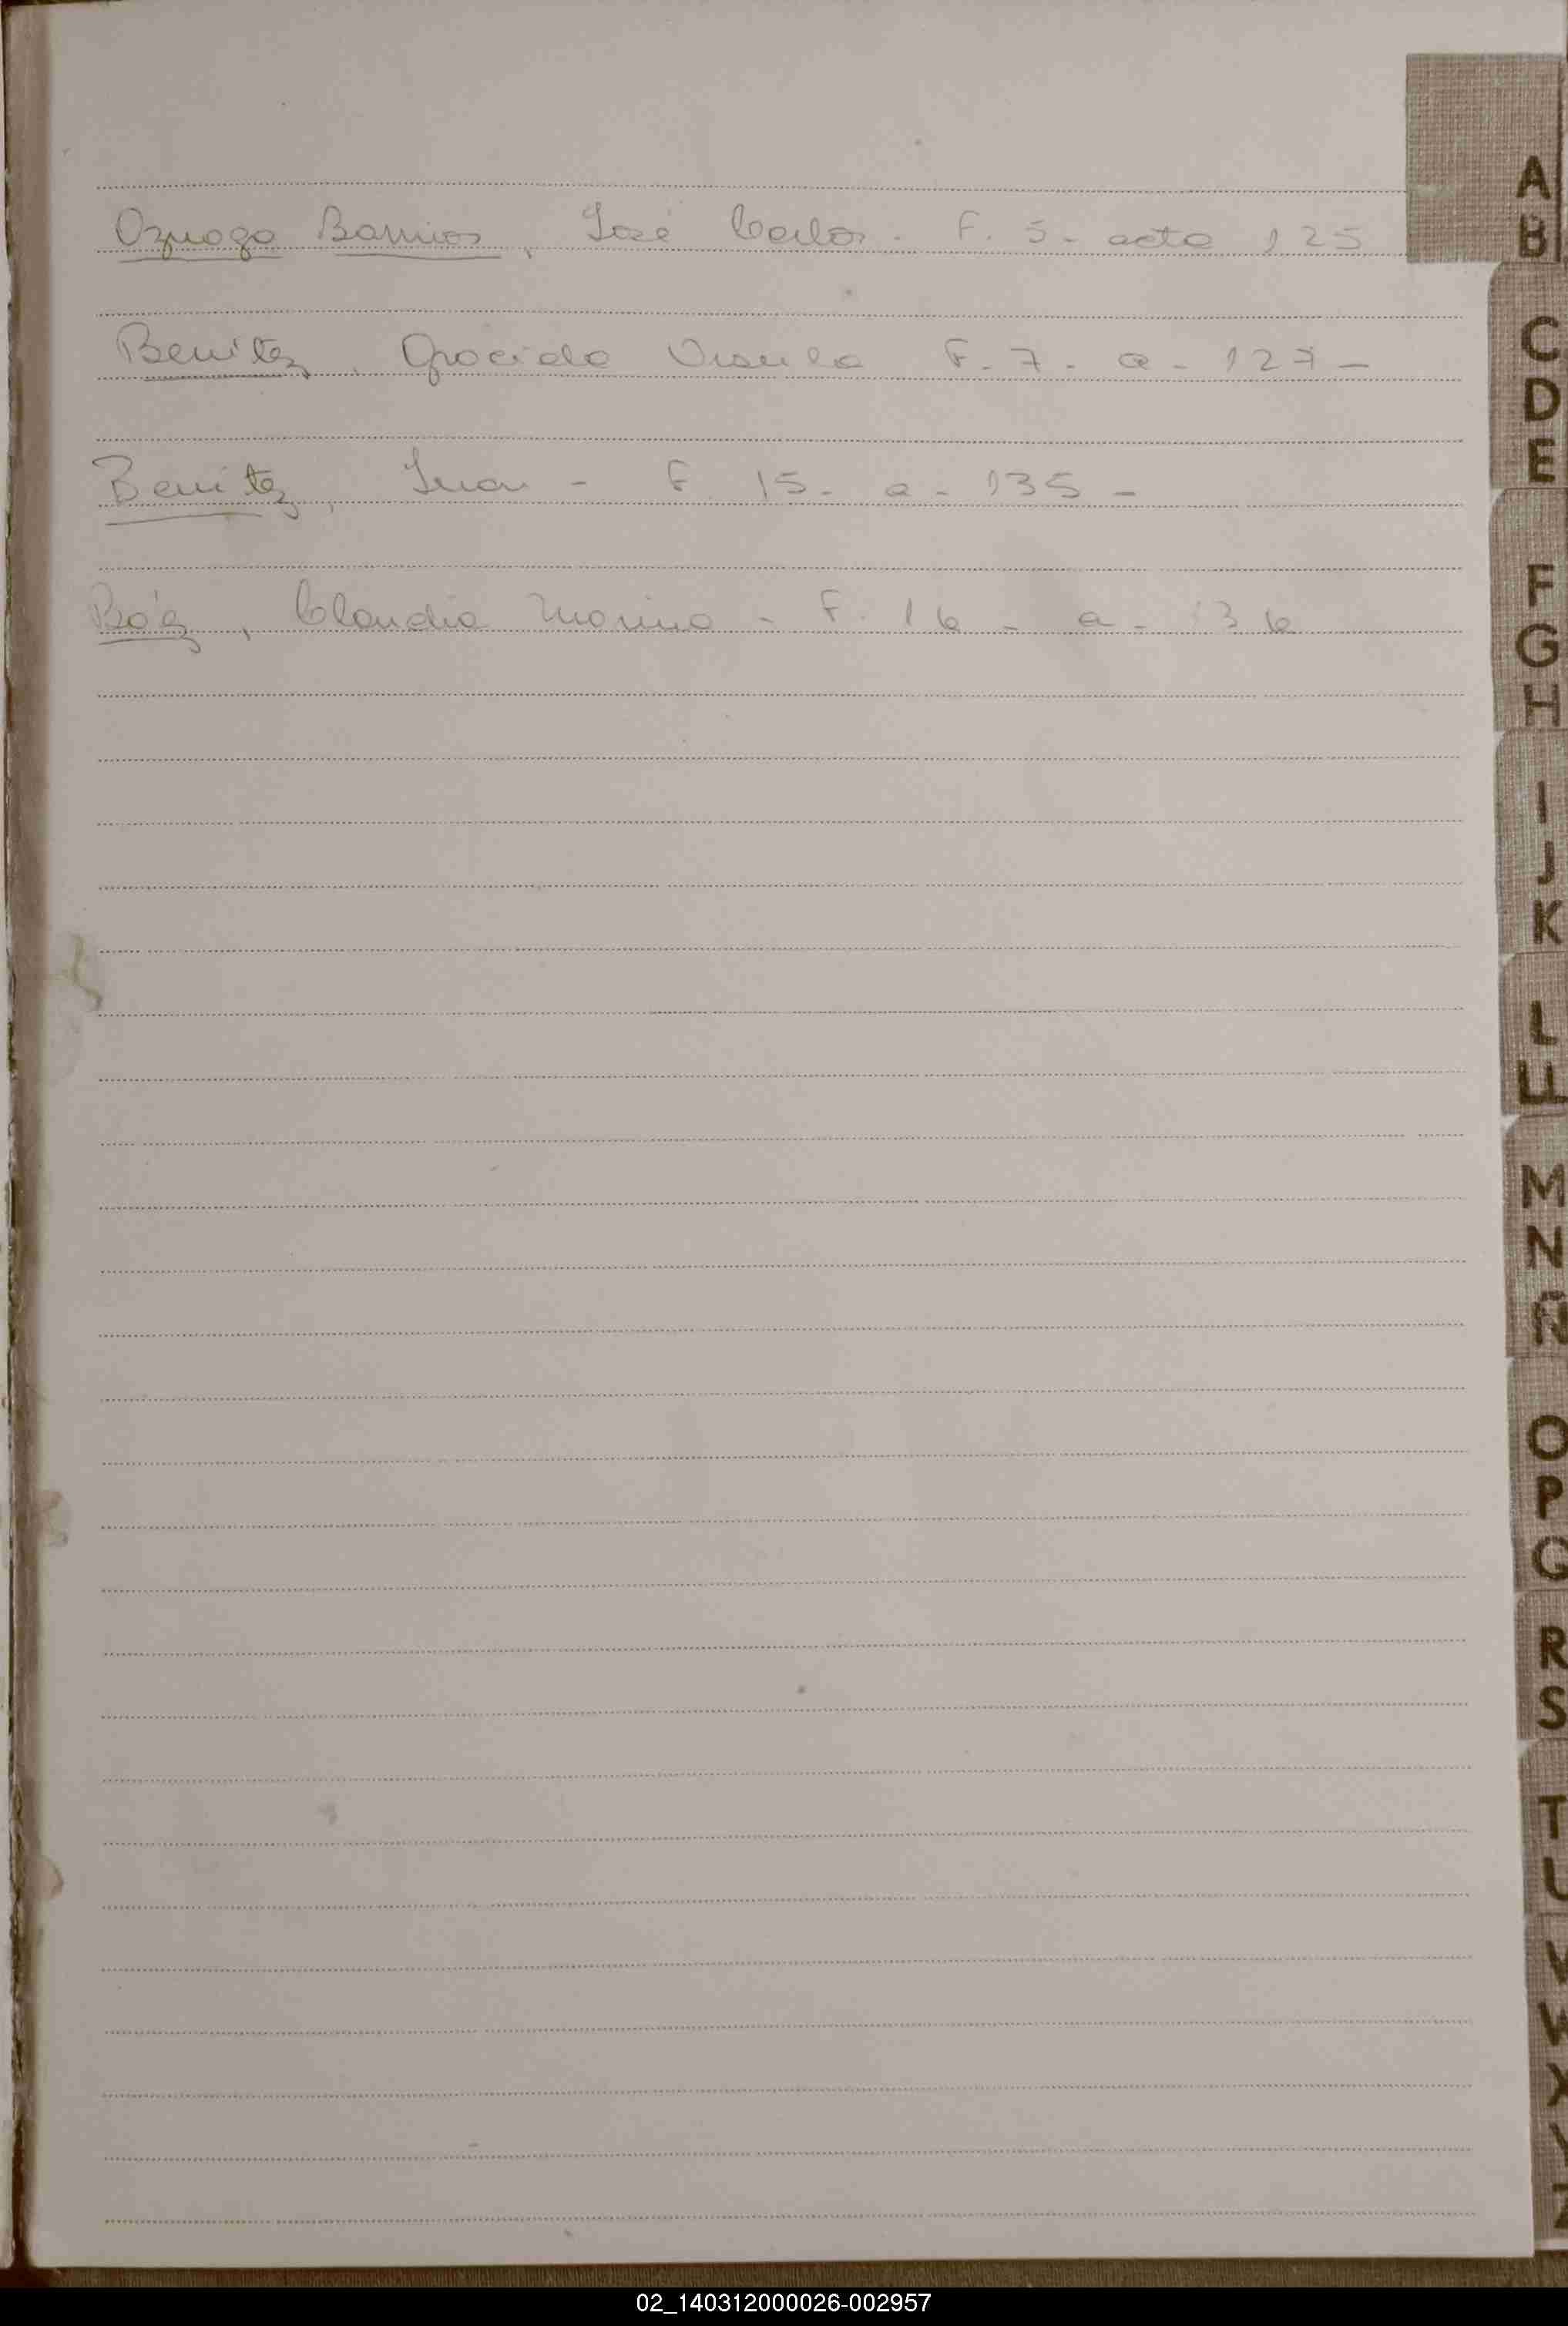 Azuaga Barrios, José Carlos - F. 5 - acta 125
Benitez, Graciela Ursula F. 7 - a - 127 -
Benitez, Juan - F 15 - a - 135 -
Báez, Claudia Marina - F. 16 - a - 136
A
B
C
D
E
F
G
H
I
J
K
L
LL
M
N
Ñ
O
P
Q
R
S
T
U
V
W
X
Y
Z
02_140312000026-002957